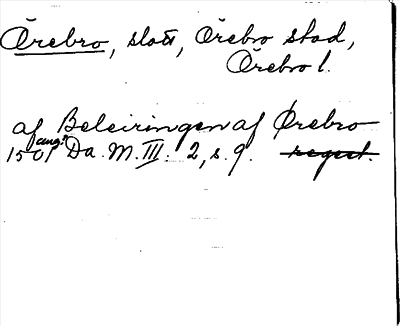 Örebro, slott, Örebro stad,
Örebro l.
af Beleiringen af Ørebro
aug.
1501 Da. M. III. 2, s. 9. regest.